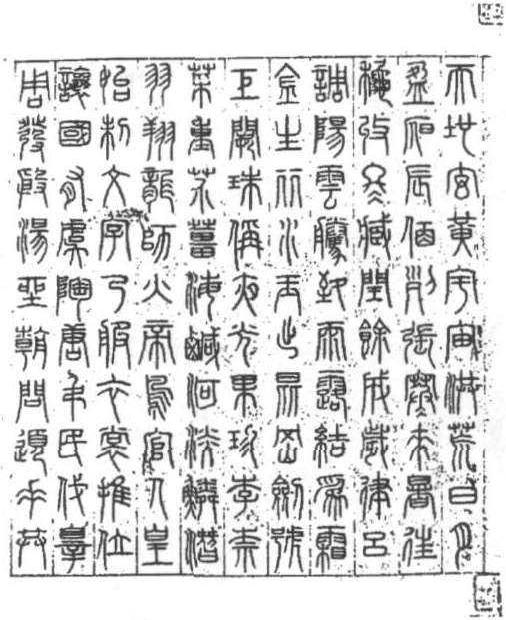 天地玄黃宇宙洪荒日月
盈昃辰宿列張寒來暑往
秋收冬藏閏餘成歲律呂
調陽雲騰致雨露結為霜
金生麗水玉出昆岡劍號
巨闕珠稱夜光果珍李柰
菜重芥薑海鹹河淡鱗潛
羽翔龍師火帝鳥官人皇
始制文字乃服衣裳推位
讓國有虞陶唐弔民伐辠
周發殷湯坐朝問道垂拱